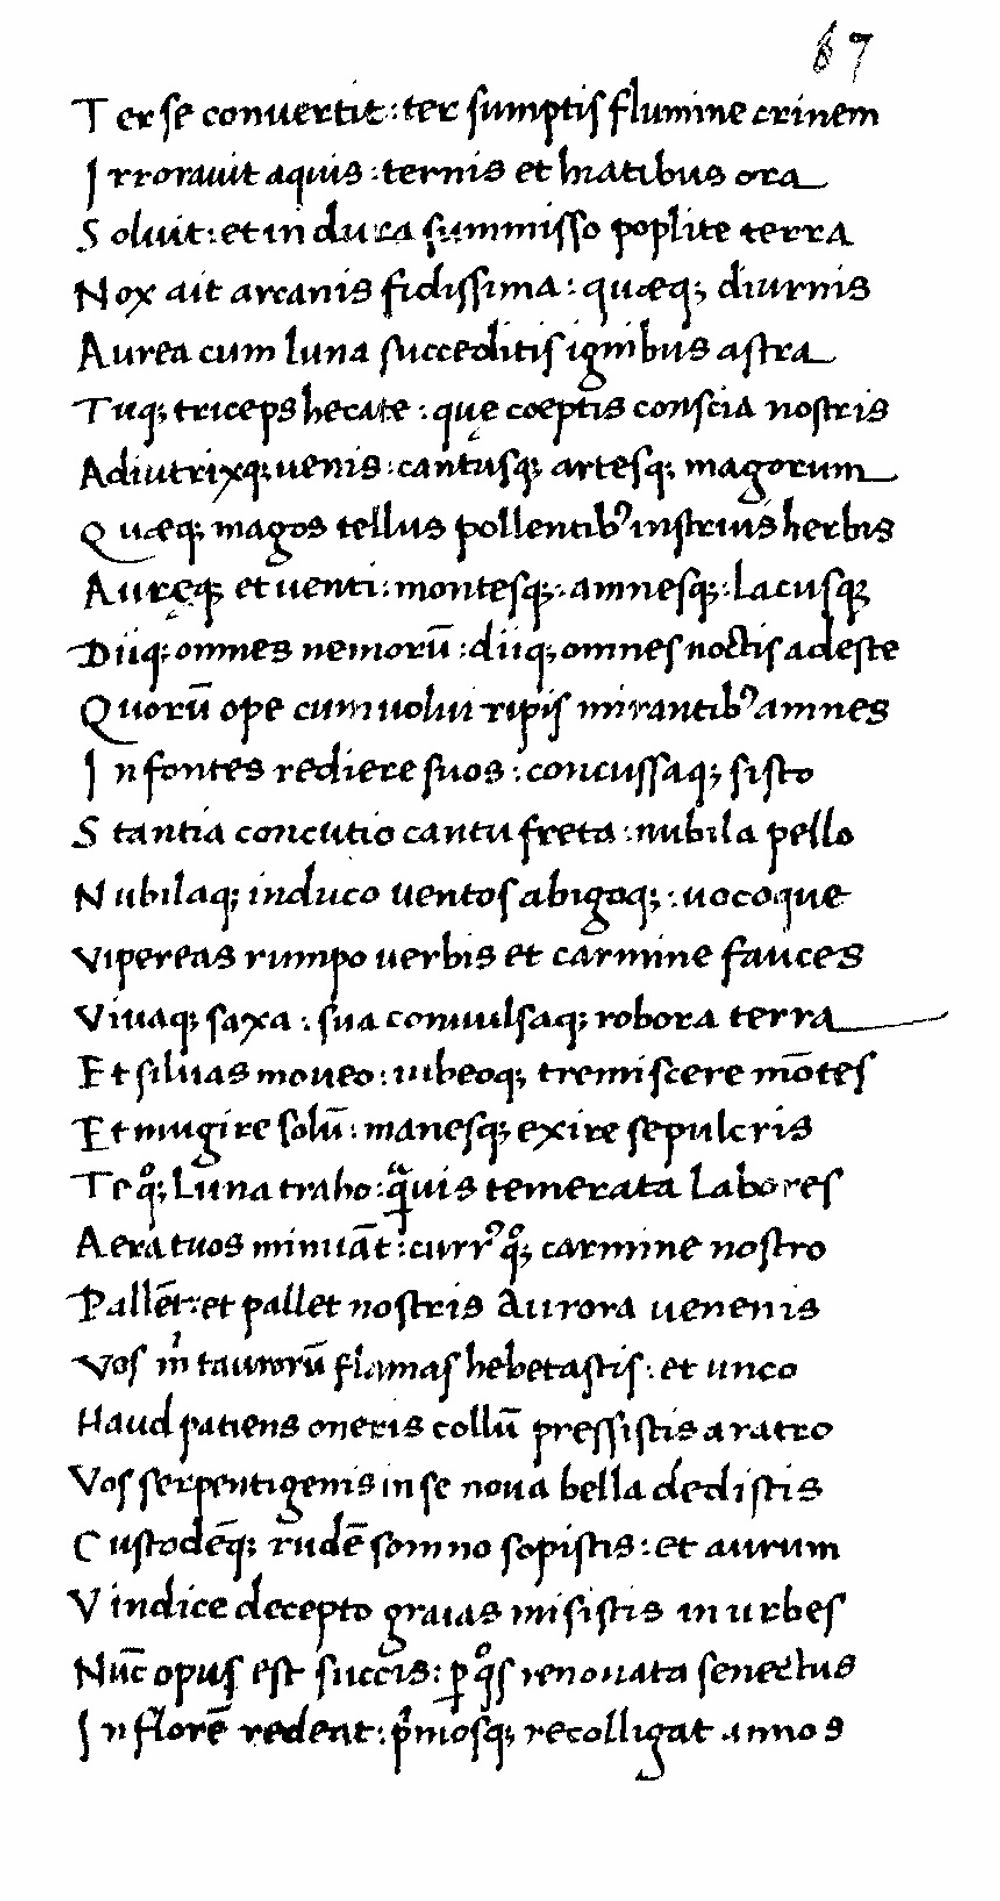 67
Ter se convertit: ter sumptis flumine crinem
Irroravit aquis: ternis et hiatibus ora
Soluit: et in dura summisso poplite terra
Nox ait arcanis fidissima: quæq; diurnis
Aurea cum luna succeditis ignibus astra
Tuq; triceps hecate: quę coeptis conscia nostris
Adiutrixq; uenis: cantusq; artesq; magorum
Quæq; magos tellus pollentibꝰ instruis herbis
Auręq; et uenti: montesq;: amnesq;: lacusq;
Diiq; omnes nemorū: diiq; omnes noctis adeste
Quorū ope cum uolui ripis mirantibꝰ amnes
In fontes rediere suos: concussaq; sisto
Stantia concutio cantu freta: nubila pello
Nubilaq; induco uentos abigoq;: uocoque
Vipereas rumpo uerbis et carmine fauces
Viuaq; saxa: sua conuulsaq; robora terra
Et siluas moueo: iubeoq; tremiscere mōtes
Et mugire solū: manesq; exire sepulcris
Te qͦ; Luna traho: qᷓuis temerata Labores
Aera tuos minuāt: currꝰ qͦ; carmine nostro
Pallēt: et pallet nostris Aurora uenenis
Vos m̍ taurorū flamas hebetastis: et unco
Haud patiens oneris collū pressistis aratro
Vos serpentigenis in se noua bella dedistis
Custodēq; rudē somno sopistis: et aurum
Vindice decepto graias misistis in urbes
Nūc opus est succis: ꝑ qͦs renouata senectus
In florē redeat: pͥmosq; recolligat annos